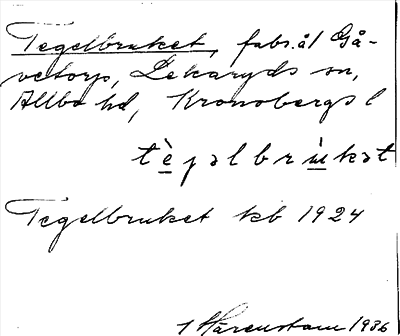 Tegelbruket, fabr. å l Gå-
vetorp, Lekaryds sn,
Allbo hd, Kronobergs l
tègəlbrùkət
Tegelbruket kb 1924
1936